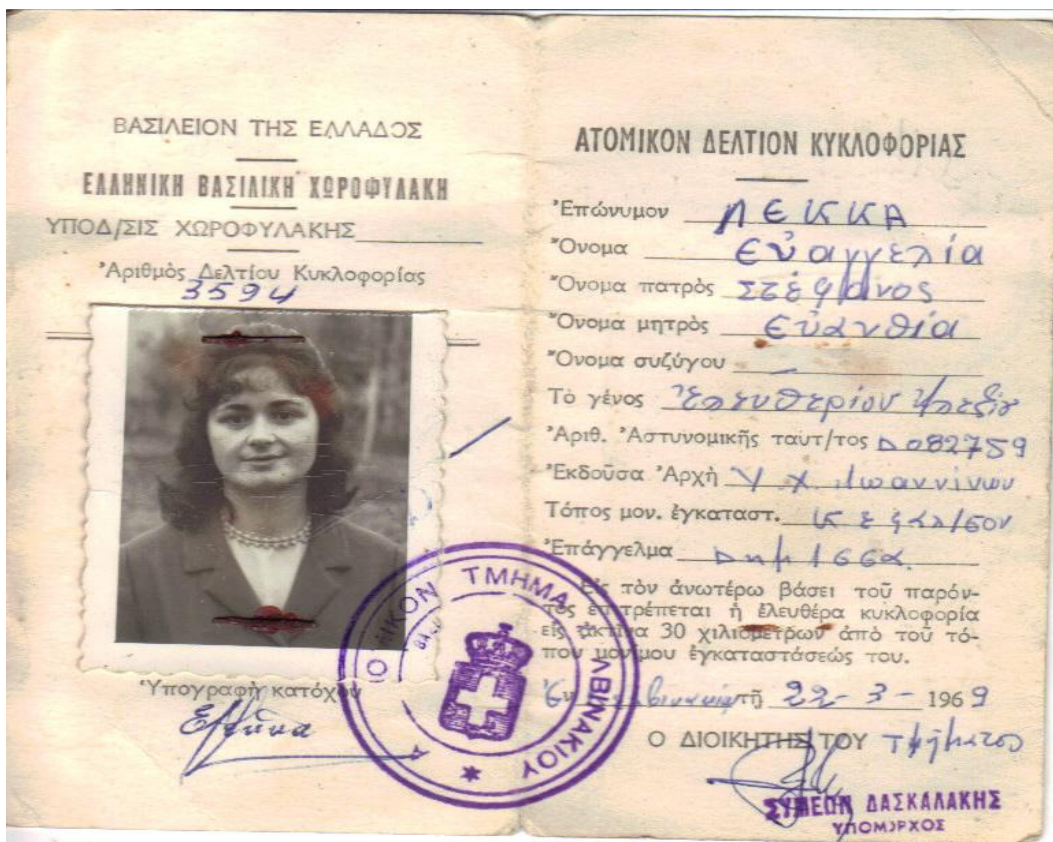 ΒΑΣΙΛΕΙΟΝ ΤΗΣ ΕΛΛΑΔΟΣ
ΕΛΛΗΝΙΚΗ ΒΑΣΙΛΙΚΗ ΧΩΡΟΦΥΛΑΚΗ
ΥΠΟΔ/ΣΙΣ ΧΩΡΟΦΥΛΑΚΗΣ
Ἀριθμὸς Δελτίου Κυκλοφορίας
3594
Ὑπογραφὴ κατόχου
ΤΜΗΜΑ
ΑΤΟΜΙΚΟΝ ΔΕΛΤΙΟΝ ΚΥΚΛΟΦΟΡΙΑΣ
Ἐπώνυμον ΛΕΚΚΑ
Ὄνομα Εὐαγγελία
Ὄνομα πατρὸς Στέφανος
Ὄνομα μητρὸς Εὐανθία
Ὄνομα συζύγου —
Τὸ γένος Ἐλευθερίου
Ἀριθ. Ἀστυνομικῆς ταυτ/τος Δ082759
Ἐκδοῦσα Ἀρχὴ Υ.Χ. Ἰωαννίνων
Τόπος μον. ἐγκαταστ.
Ἐπάγγελμα
Εἰς τὸν ἀνωτέρω βάσει τοῦ παρόν-
τος ἐπιτρέπεται ἡ ἐλευθέρα κυκλοφορία
εἰς ἀκτῖνα 30 χιλιομέτρων ἀπὸ τοῦ τό-
που μονίμου ἐγκαταστάσεώς του.
Ἐν τῇ 22-3-1969
Ο ΔΙΟΙΚΗΤΗΣ ΤΟΥ Τμήματος
ΣΥΜΕΩΝ ΔΑΣΚΑΛΑΚΗΣ
ΥΠΟΜ)ΡΧΟΣ